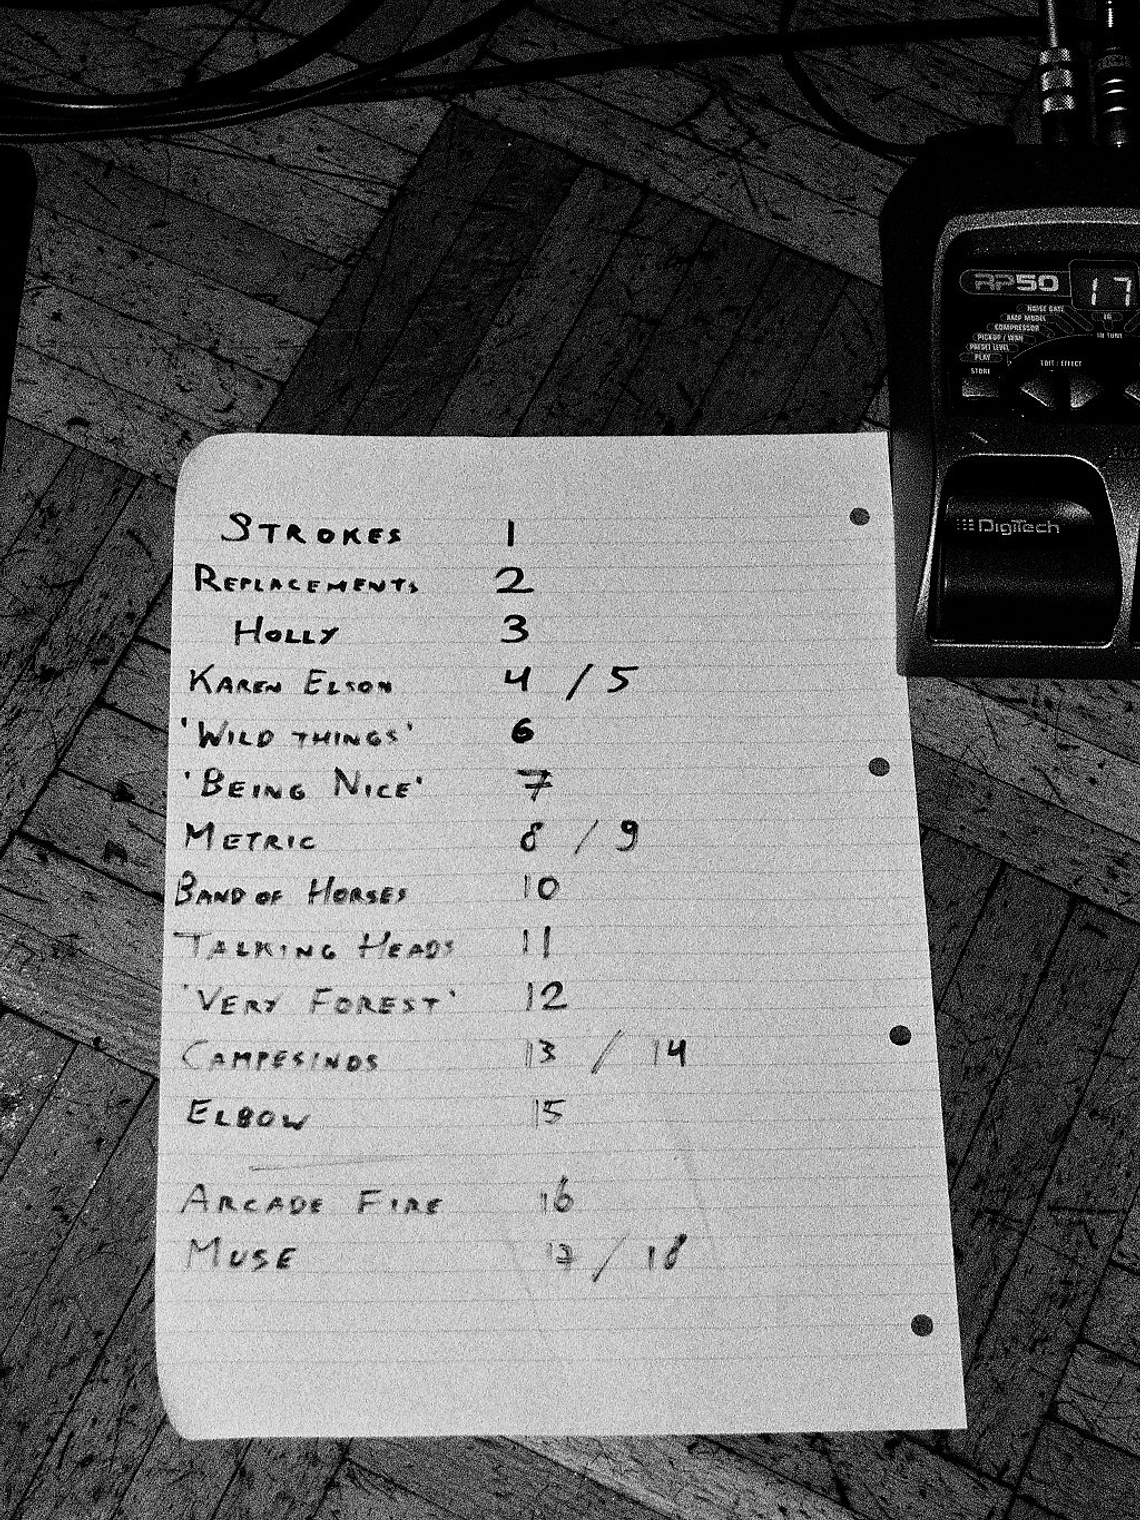 RP50
17
NOISE GATE
AMP MODEL
COMPRESSOR
PICKUP / WAH
PRESET LEVEL
PLAY
STORE
EDIT / EFFECT
IN TUNE
DigiTech
STROKES 1
REPLACEMENTS 2
HOLLY 3
KAREN ELSON 4 / 5
'WILD THINGS' 6
'BEING NICE' 7
METRIC 8 / 9
BAND OF HORSES 10
TALKING HEADS 11
'VERY FOREST' 12
CAMPESINOS 13 / 14
ELBOW 15
ARCADE FIRE 16
MUSE 17 / 18